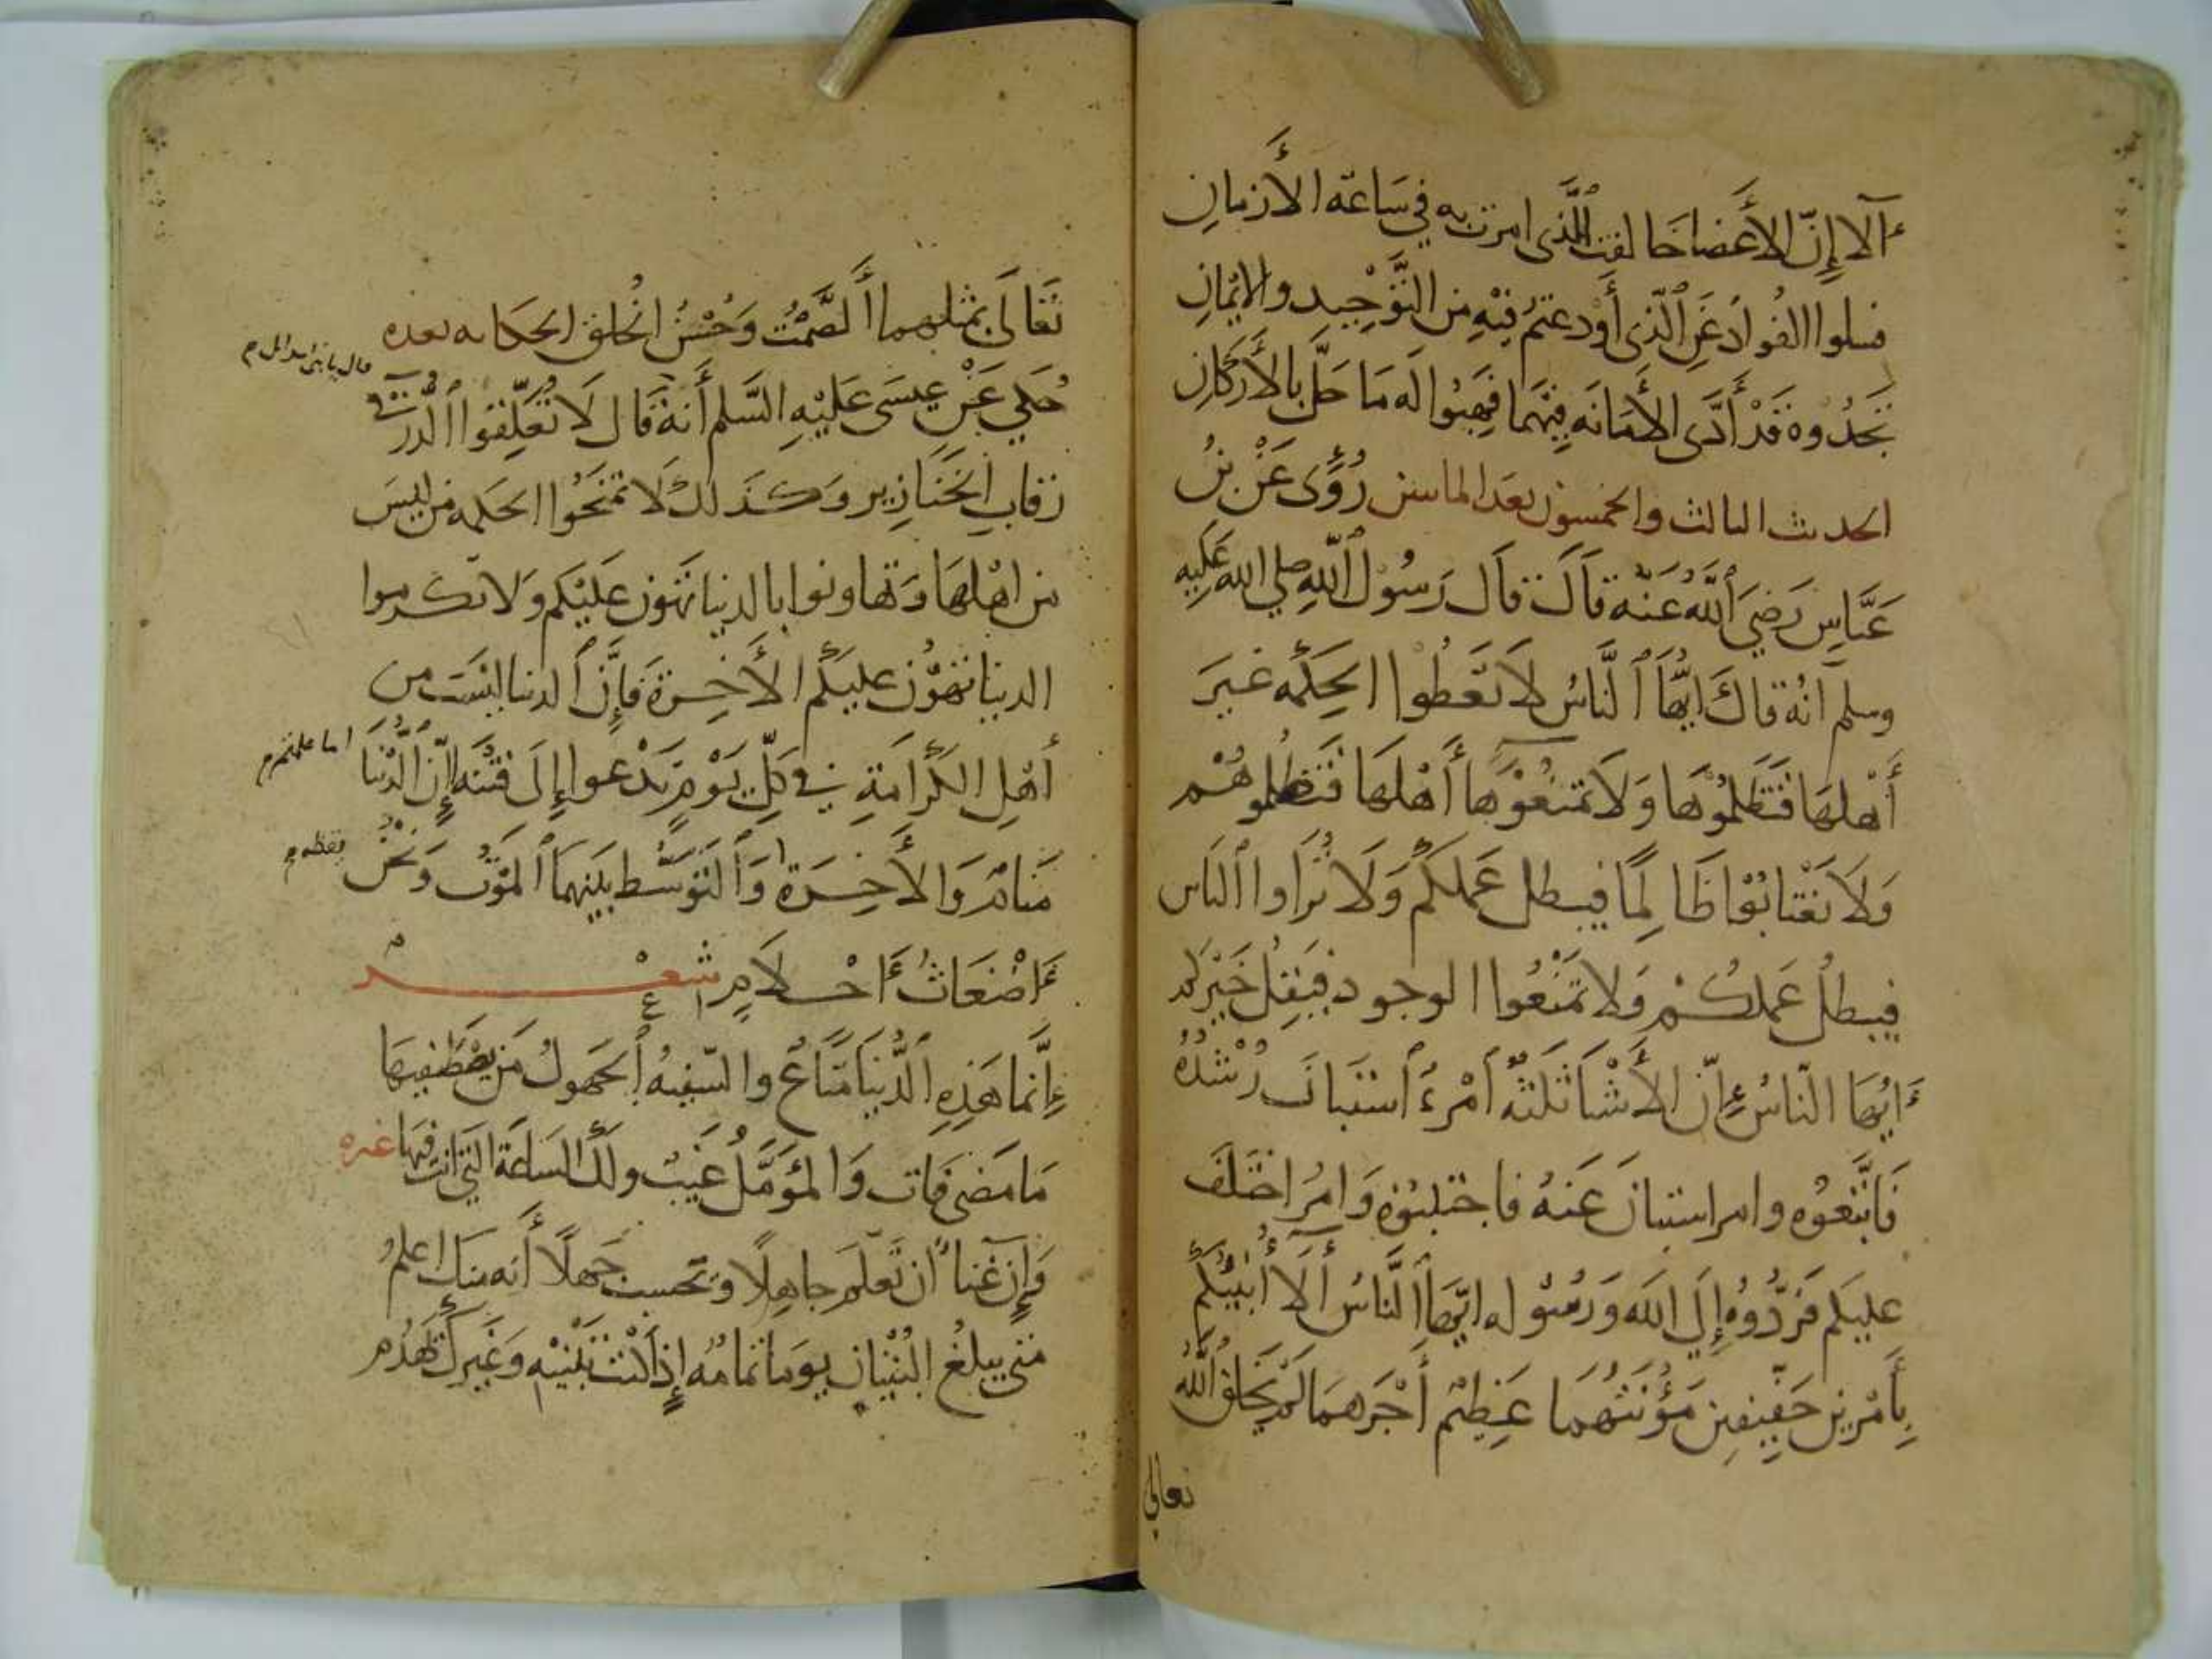 ألا إنّ الأعضا خالفت الّذى امرت به في ساعة الأزمانِ
فسلوا الفُوادَ عَنِ الّذى أودعتمُ فيْهِ من التَّوْحِيد والايْمانِ
تجدُوه قَدْ أدَّى الأمَانَه فِيْهما فهبُوا لَه مَا حَلَّ بالأَركانِ
الحديث الثالث والخمسون بعد الماتين رُوِّىَ عَنْ بنُ
عَبَّاسٍ رَضِيَ اللَّهُ عَنْه قَالَ قَالَ رَسُوْل اللَّهِ صلي الله عَلَيه
وسلم انهُ قالَ ايُّهَا النَّاسُ لَا تَعْطُوا الحِكمه غيرَ
أَهْلهَا فَتَظلمُوْهَا وَلَا تمنعُوْها أَهْلهَا فَتَظلموهُمْ
وَلَا تَعْتابُوْا ظَالِمًا فيبطل عَملكُم وَلَا تُرَاوا النَاس
فيبطلُ عَملكُمْ وَلا تمْنعُوا الوجود فيَقِلُّ خَيْركُم
أَيُّهَا النّاسُ إِنّ الأَشْيَا ثَلثةٌ أمْرءُ استَبانَ رُشْدُهُ
فَاتَّبَعُوْه وامر استبانَ عَنهُ فاجتنبُوْه وَامرُ اختَلَفَ
عليكم فَردُّوْهُ إِلَى الله وَرسُوله ايُّهَا النَّاسُ أَلَا أُنَبِّيُكُم
بِأَمْرين خَفِيْفِين مَؤُنتُهُمَا عَظِيْم أَجْرهمَا لَمْ يَخلق اللَّهُ
تعالي
تَعَالَى بمثلهما الصَّمْتُ وَحُسْنُ الخُلق الحكايه بعده
حُكي عَنْ عِيسَى عَلَيْهِ السَّلم أَنهُ قَال لَا تُعَلِّقُوا الدُّرَّ في
رقابِ الخَنَازِير وَكَذَلكَ لَا تمْنَحُوا الحكمه من لَيسَ
من اهْلهَا وَتَهاونوا بالدنيا تَهُون عَلَيْكم وَلا تكرموا
الدنيا تهُوْن عليكُم الأَخِرة فَإِنَّ الدنيا ليْسَت من
أَهْلِ الكَرامَةِ في كلِّ يَوْمٍ تدْعوا إِلَى فتنه إنّ الدُّنْيَا
مَنام وَالأَخِرَة وَالتَوَسُّط بيَنهمَا المَوْت وَنَحْنُ
أَضْغَاثُ أَحْلَامٍ شعْر
إِنّما هَذِهِ الدُّنيَا مَتَاعٌ والسّفيهُ الجَهولُ مَن يصْطَفيهَا
مَا مَضى فَات وَالمُؤَمَّلُ غَيبٌ ولكَ السَاعَة التي انت فيهَا غيره
وَإِنَّ عَنا ان تُعَلّمَ جاهِلًا وَتحسب جَهلًا أَنه مِنكَ اعلمُ
متى يبلغُ البُنْيَان يومًا تمامهُ إِذا كُنْت تَبْنيْهِ وَغَيركَ يَهْدُم